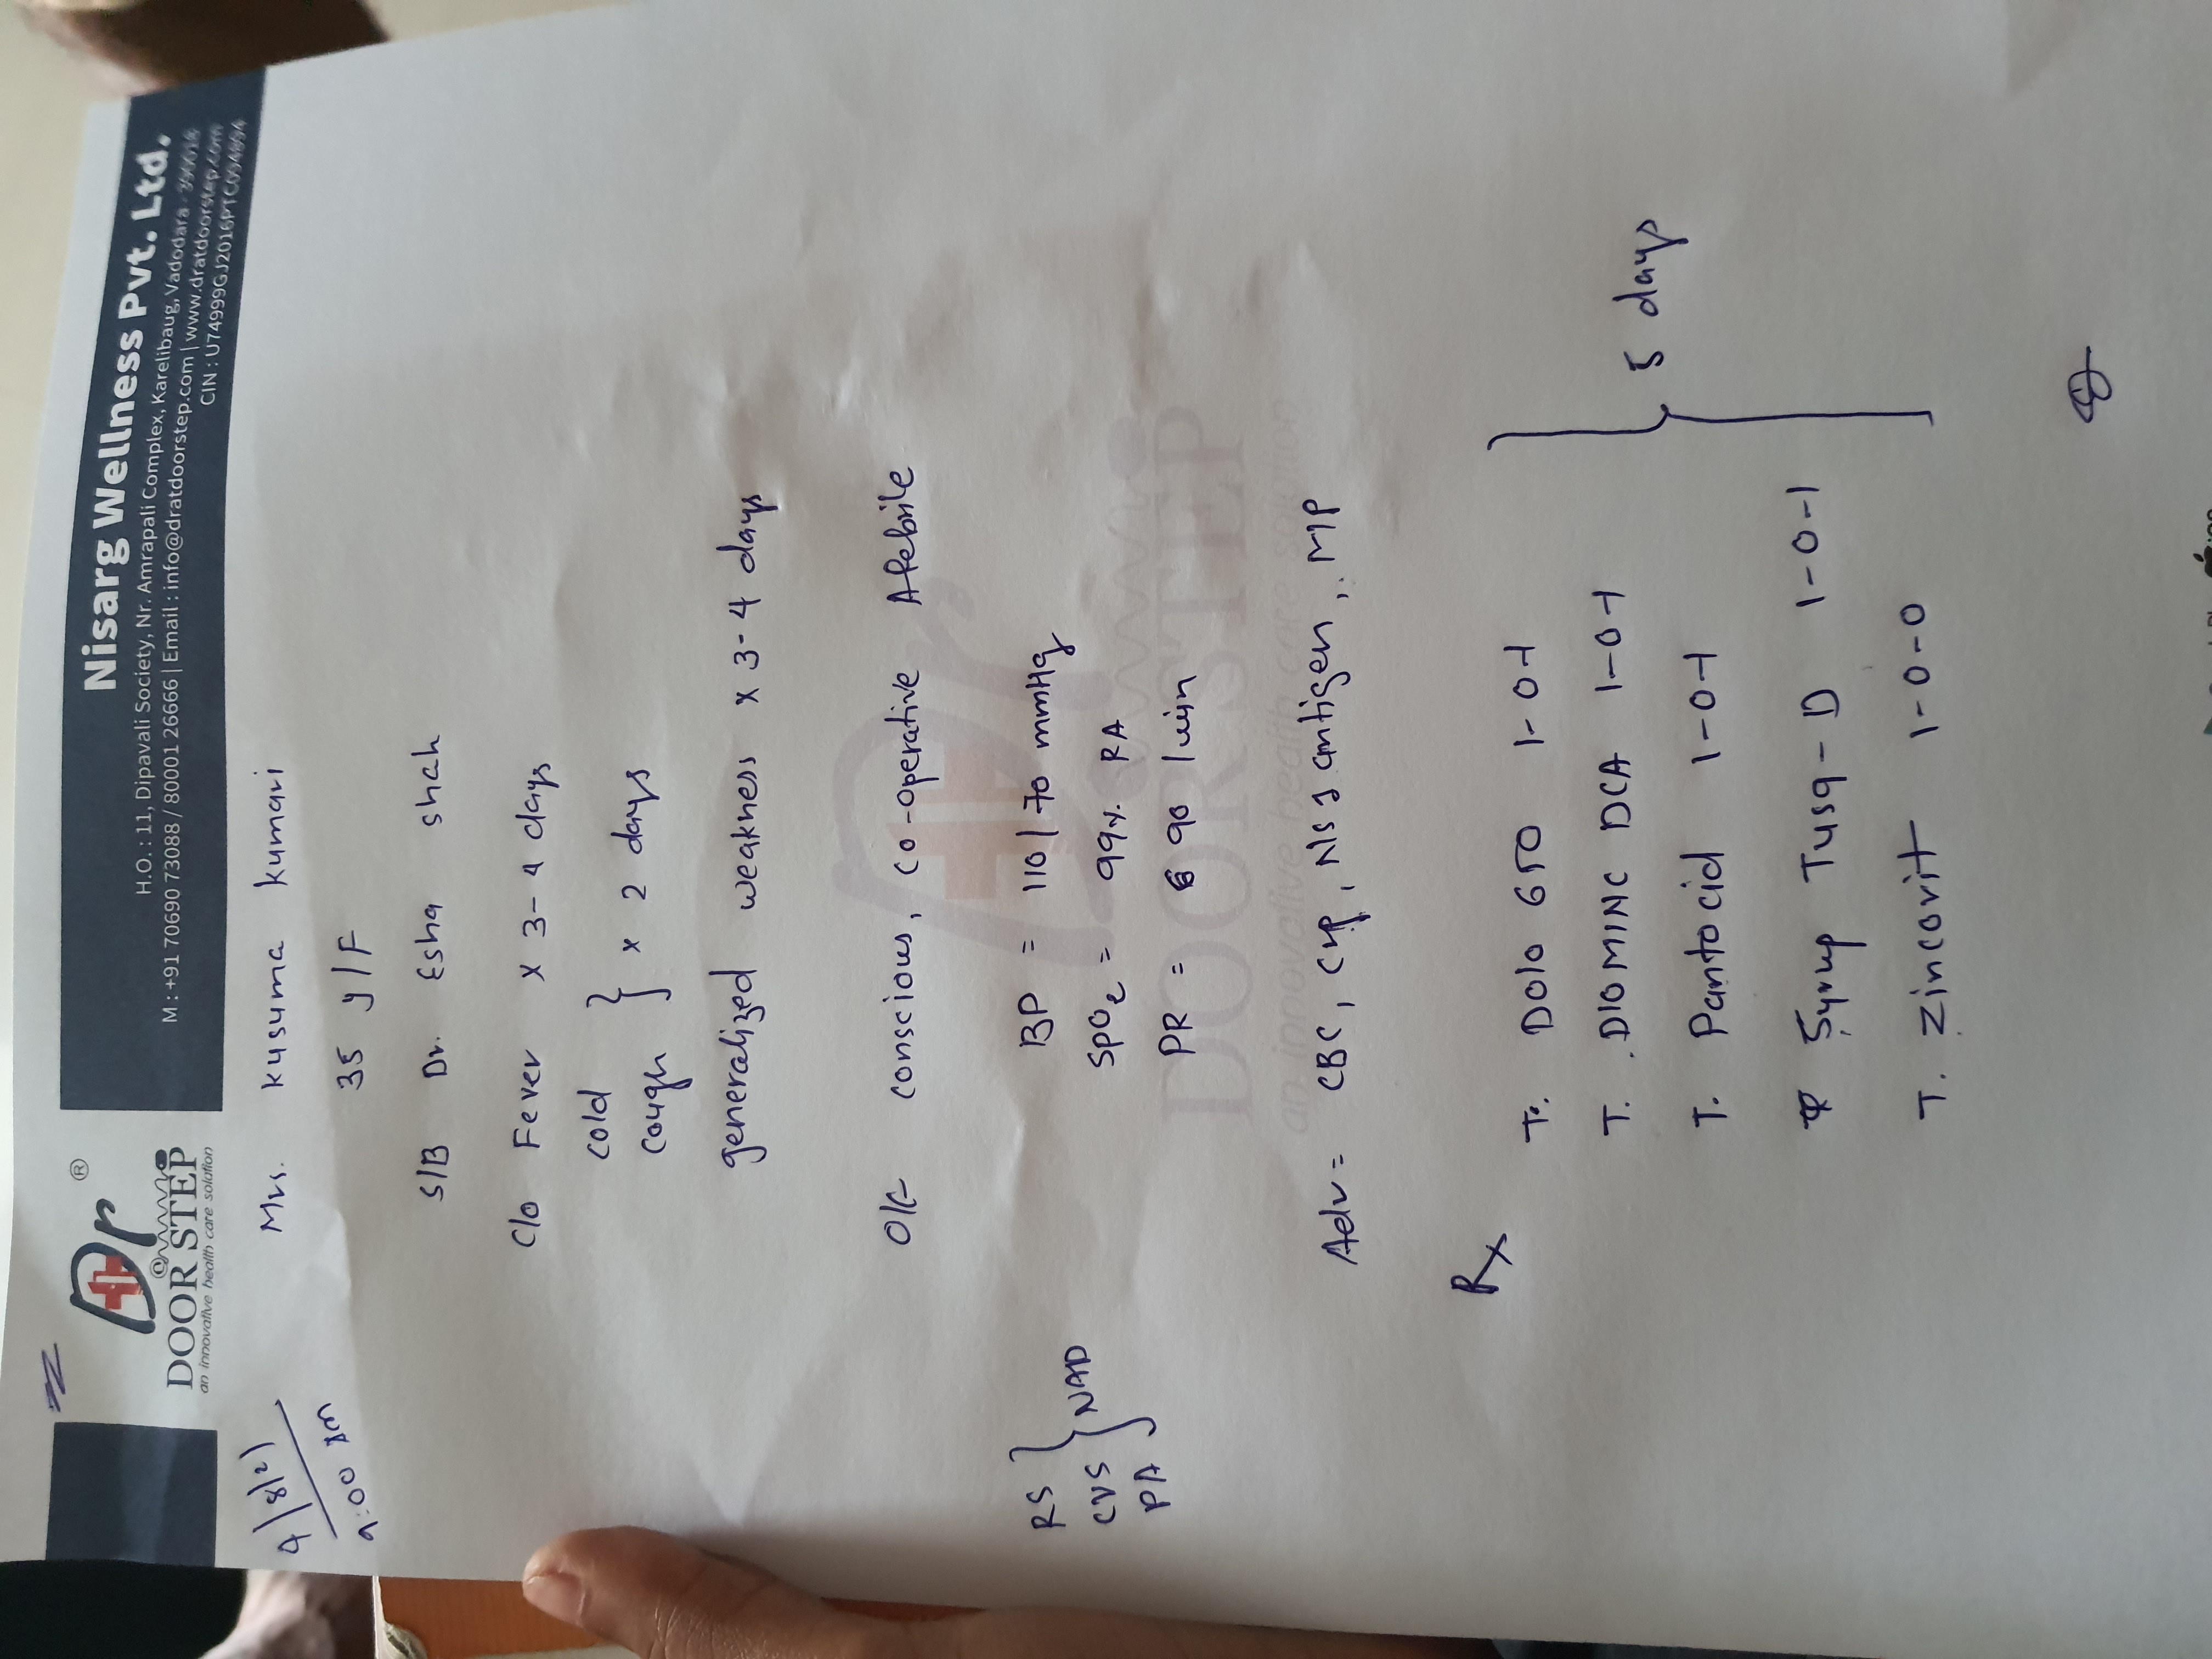 Dr ®
DOOR STEP
an innovative health care solution
Nisarg Wellness Pvt. Ltd.
H.O. : 11, Dipavali Society, Nr. Amrapali Complex, Karelibaug, Vadodara - 390018
M : +91 70690 73088 / 80001 26666 | Email : info@dratdoorstep.com | www.dratdoorstep.com
CIN : U74999GJ2016PTC094894
4/8/21
9:00 Am
Mrs. Kusuma Kumari
35 y/F
S/B Dr. Esha Shah
C/o Fever x 3-4 days
cold
cough } x 2 days
generalized weakness x 3-4 days
O/E conscious, co-operative Afebrile
RS
CVS } NAD
PA
BP = 110/70 mmHg
SpO2 = 99% RA
PR = 90 /min
Adv = CBC, Crp, NS1 antigen, MP
Rx
T. Dolo 650 1-0-1
T. DIOMINC DCA 1-0-1
T. Pantocid 1-0-1
Syrup Tusq-D 1-0-1
T. Zincovit 1-0-0
} 5 days
Dr
DOOR STEP
an innovative health care solution